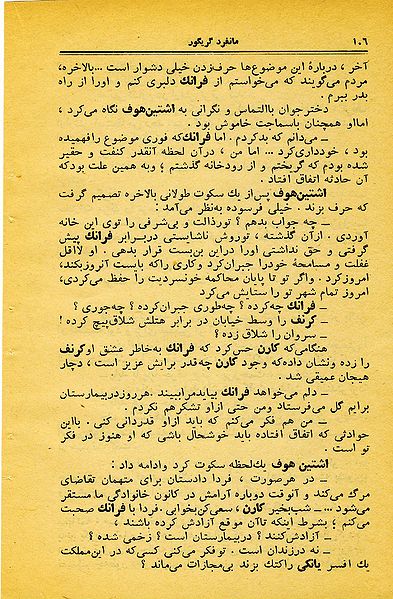 ۱۰۶ مانفرد گریگور
آخر ، دربارهٔ این موضوع‌ها حرف‌زدن خیلی دشوار است ...بالاخره،
مردم می‌گویند که می‌خواستم از فرانك دلبری کنم و اورا از راه
بدر ببرم .
دخترجوان باالتماس و نگرانی به اشتین‌هوف نگاه می‌کرد ،
امااو همچنان باسماجت خاموش بود .
ــ می‌دانم که بدکردم . اما فرانك‌که فوری موضوع رافهمیده
بود ، خودداری‌کرد ... اما من ، درآن لحظه آنقدر کنفت و حقیر
شده بودم که گریختم و از رودخانه گذشتم ؛ وبه همین علت بودکه
آن حادثه اتفاق افتاد .
اشتین‌هوف پس‌از یك سکوت طولانی بالاخره تصمیم گرفت
که حرف بزند . خیلی فرسوده به‌نظر می‌آمد :
ــ چه جواب بدهم ؟ تورذالت و بی‌شرفی را توی این خانه
آوردی . ازآن گذشته ، توروش ناشایستی دربرابر فرانك پیش
گرفتی و حق نداشتی اورا دراین بن‌بست قرار بدهی . او لااقل
غفلت و مسامحهٔ خودرا جبران‌کرد وکاری راکه بایست آنروزبکند،
امروزکرد . واگر تو تا پایان محاکمه خونسردیت را حفظ می‌کردی،
امروز تمام شهر تو را ستایش می‌کرد
ــ فرانك چه‌کرده ؟ چه‌طوری جبران‌کرده ؟ چه‌جوری ؟
ــ کرنف را وسط خیابان در برابر هتلش شلاق‌پیچ کرده !
ــ سروان را شلاق زده ؟
هنگامی‌که کارن حس‌کرد که فرانك به‌خاطر عشق اوکرنف
را زده ونشان داده‌که وجود کارن چه‌قدر برایش عزیز است ، دچار
هیجان عمیقی شد .
ــ دلم می‌خواهد فرانك بیایدمراببیند .هرروزدربیمارستان
برایم گل می‌فرستاد ومن حتی ازاو تشکرهم نکردم .
ــ من هم فکر می‌کنم که باید ازاو قدردانی کنی . بااین
حوادثی که اتفاق افتاده باید خوشحال باشی که او هنوز در فکر
تو است .
اشتین هوف یك‌لحظه سکوت کرد وادامه داد :
ــ در هرصورت ، فردا دادستان برای متهمان تقاضای
مرگ می‌کند و آنوقت دوباره آرامش در کانون خانوادگی ما مستقر
می‌شود ... ــ شب‌بخیر کارن ، سعی‌کن‌بخوابی . فردا با فرانك صحبت
می‌کنم ؛ بشرط اینکه تاآن موقع آزادش کرده باشند ،
ــ آزادش‌کنند ؟ دربیمارستان است ؟ زخمی شده ؟
ــ نه درزندان است . توفکر می‌کنی کسی‌که در این‌مملکت
یك افسر یانکی راکتك بزند بی‌مجازات می‌ماند ؟